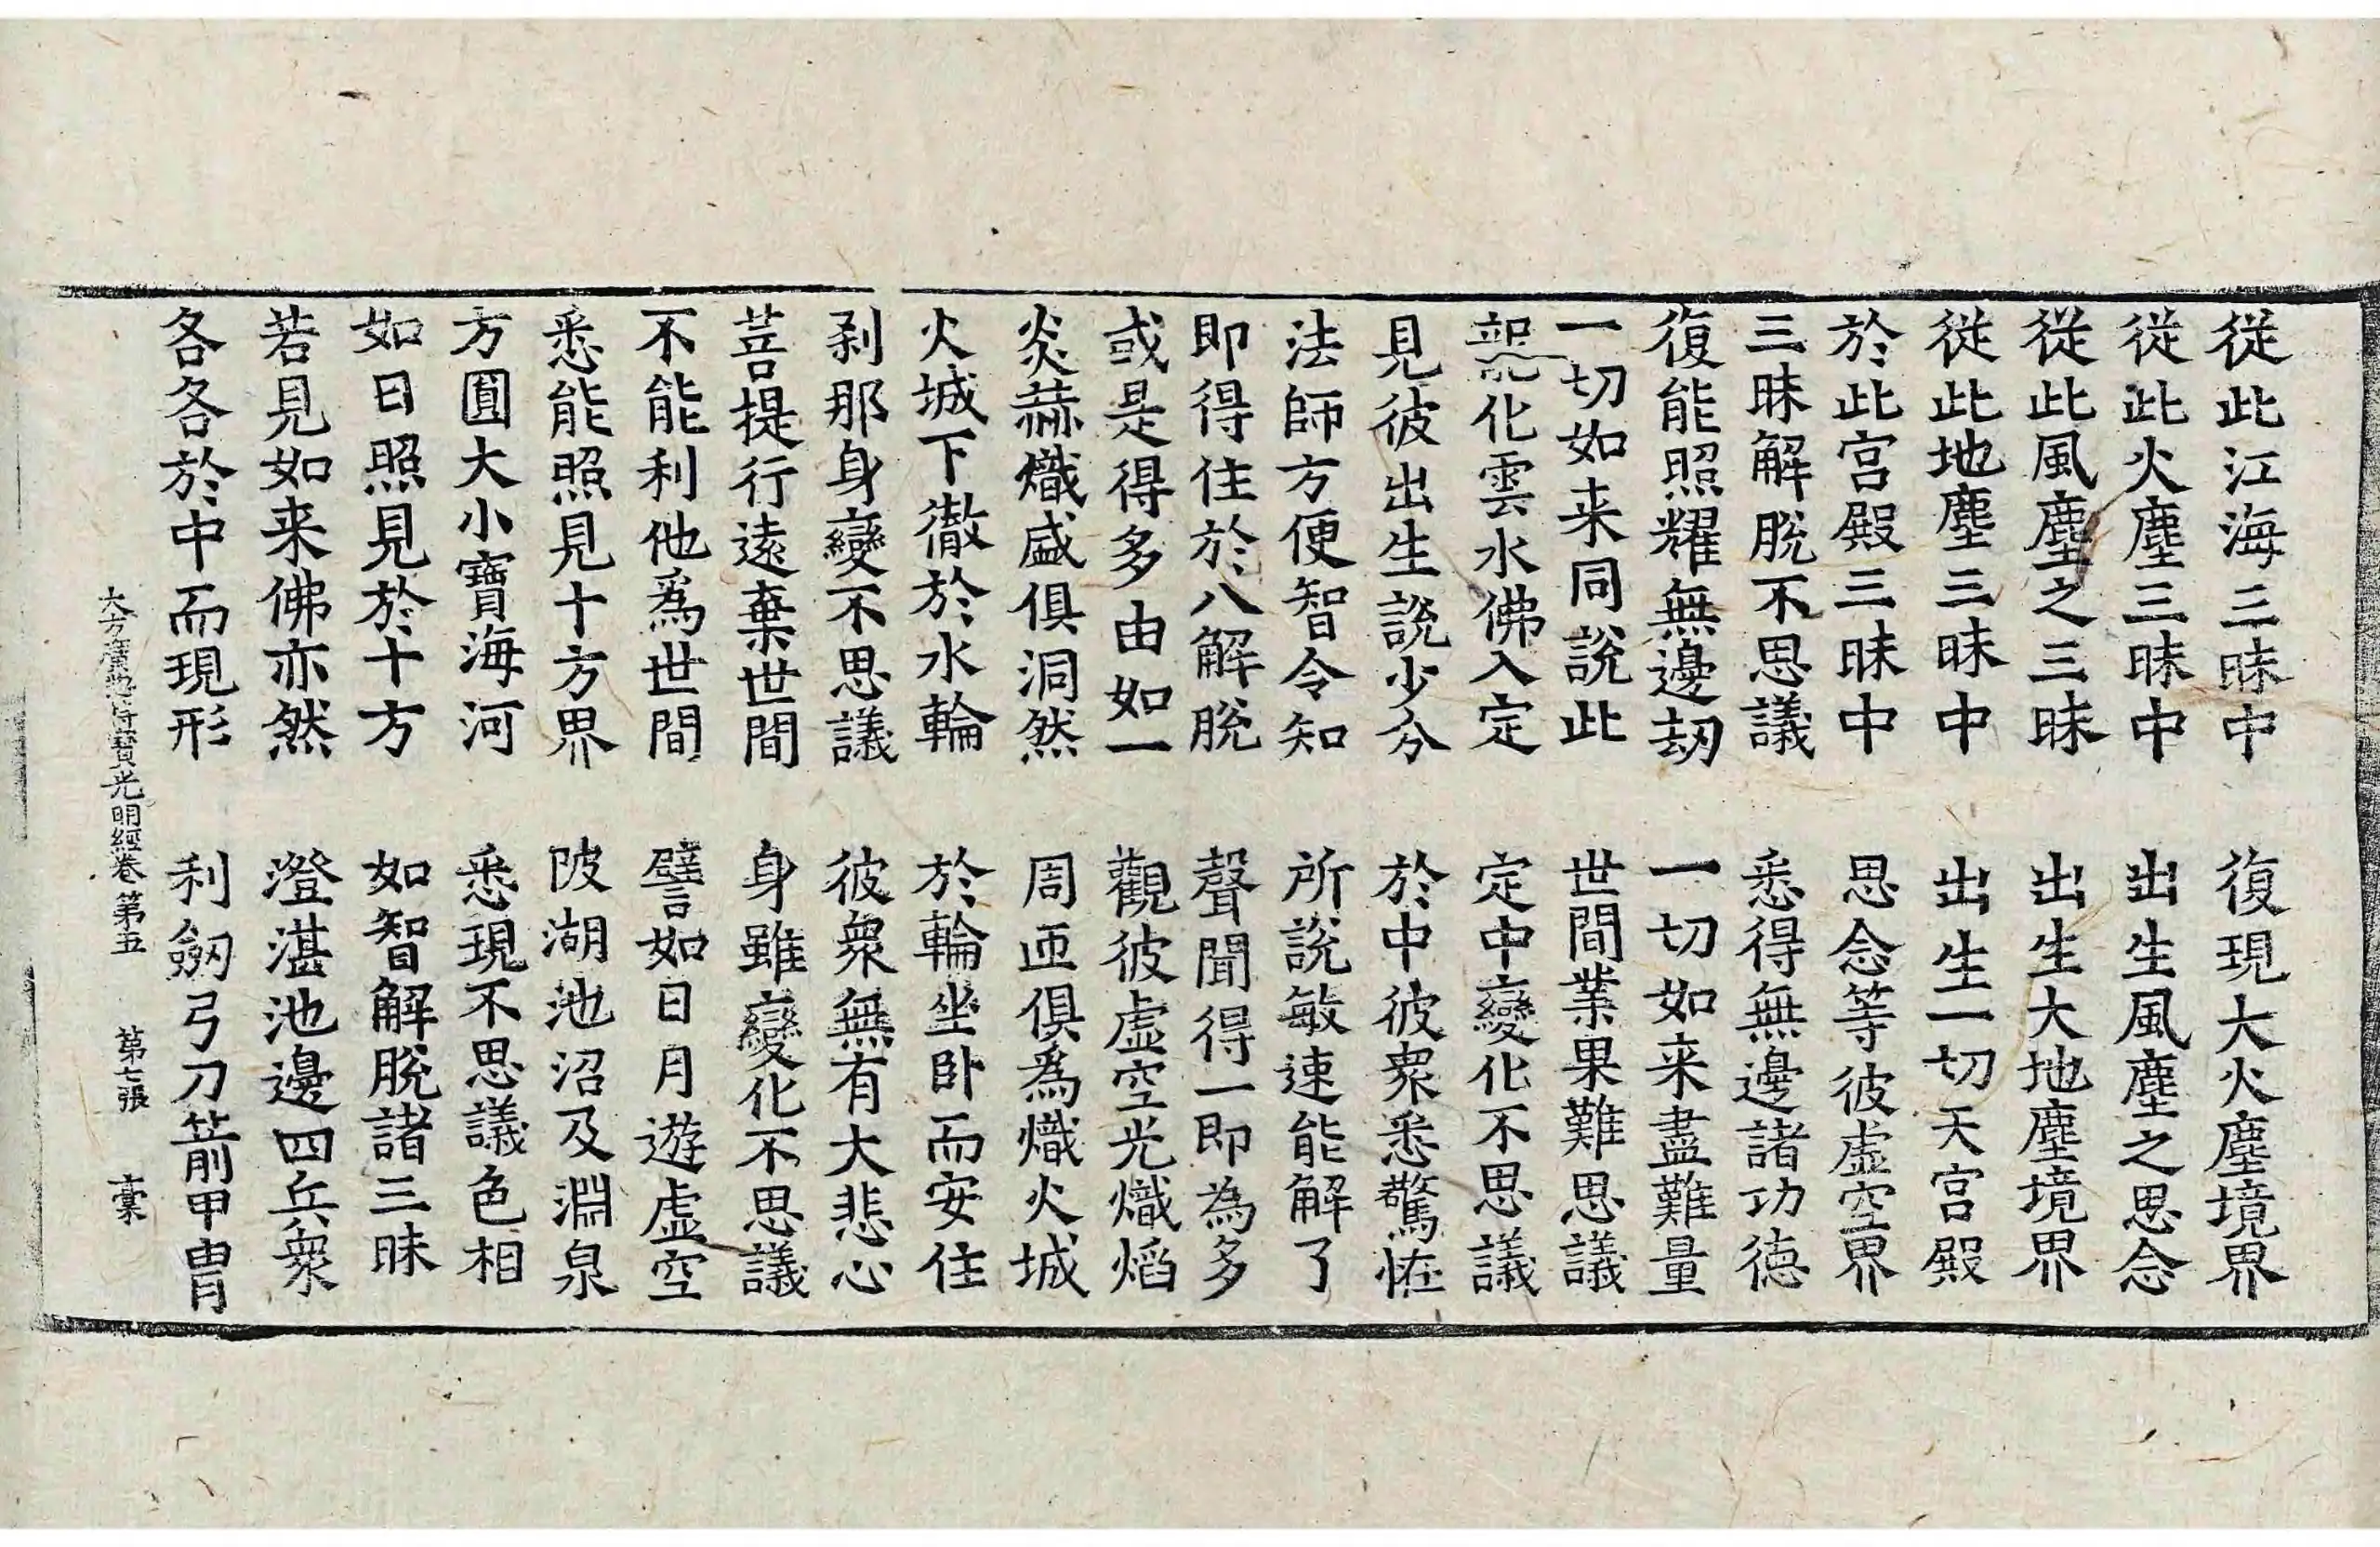 從此江海三昧中　復現大火塵境界
從此火塵三昧中　出生風塵之思念
從此風塵之三昧　出生大地塵境界
從此地塵三昧中　出生一切天宮殿
於此宮殿三昧中　思念等彼虛空界
三昧解脫不思議　悉得無邊諸功德
復能照耀無邊劫　一切如来盡難量
一切如来同說此　世間業果難思議
龍化雲水佛入定　定中變化不思議
見彼出生說少分　於中彼衆悉驚恠
法師方便智令知　所說敏速能解了
即得住於八解脫　聲聞得一即為多
或是得多由如一　觀彼虛空光熾焰
炎赫熾盛俱洞然　周迊俱爲熾火城
火城下徹於水輪　於輪坐卧而安住
剎那身變不思議　彼衆無有大悲心
菩提行遠棄世間　身雖變化不思議
不能利他爲世間　譬如日月遊虛空
悉能照見十方界　陂湖池沼及淵泉
方圓大小寶海河　悉現不思議色相
如日照見於十方　如智解脫諸三昧
若見如来佛亦然　澄湛池邊四兵衆
各各於中而現形　利劒弓刀箭甲胄
大方廣捴持寶光明經卷第五　第七張　槀